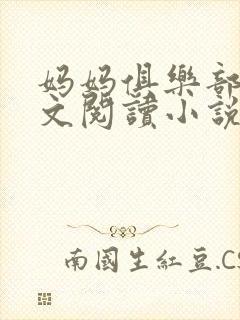 妈妈俱樂部
文閱讀小説
南國生紅豆.CS